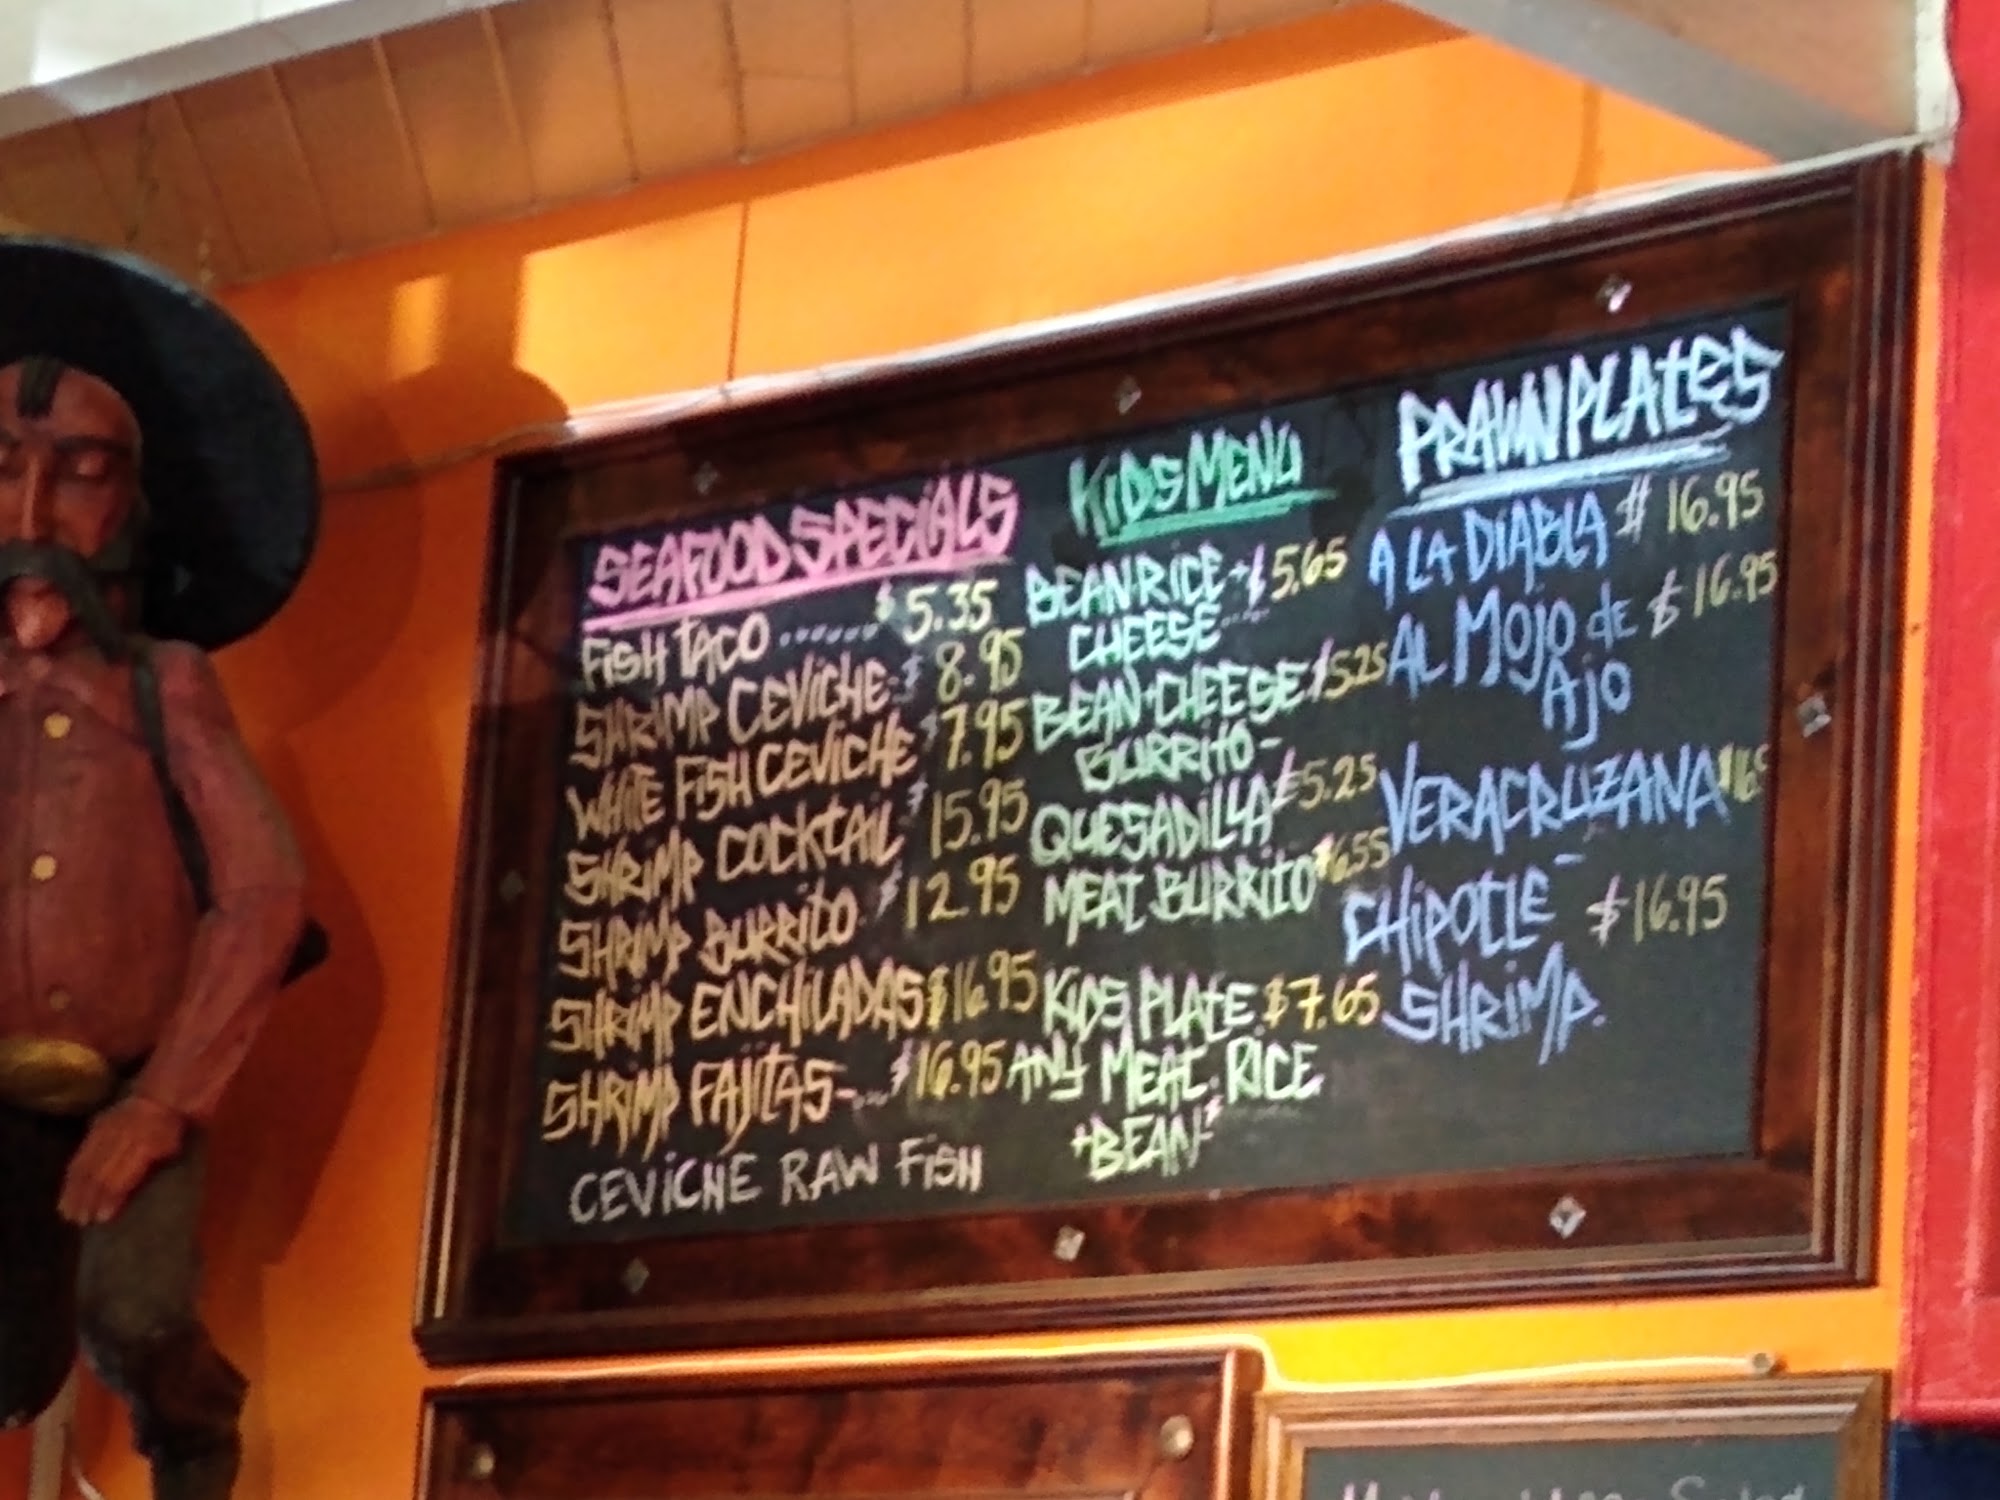 SEAFOOD SPECIALS
FISH TACO ....... $5.35
SHRIMP CEVICHE- $ 8.95
WHITE FISH CEVICHE $7.95
SHRIMP COCKTAIL $15.95
SHRIMP BURRITO $12.95
SHRIMP ENCHILADAS $16.95
SHRIMP FAJITAS-... $16.95
CEVICHE RAW FISH
KIDS MENU
BEAN+RICE+ $5.65
CHEESE....
BEAN+CHEESE $5.25
BURRITO-
QUESADILLA $5.25
MEAT BURRITO $6.55
KIDS PLATE $7.65
ANY MEAT. RICE
+BEAN
PRAWN PLATES
A LA DIABLA $16.95
AL MOJO de $16.95
AJO
VERACRUZANA
CHIPOTLE $16.95
SHRIMP.